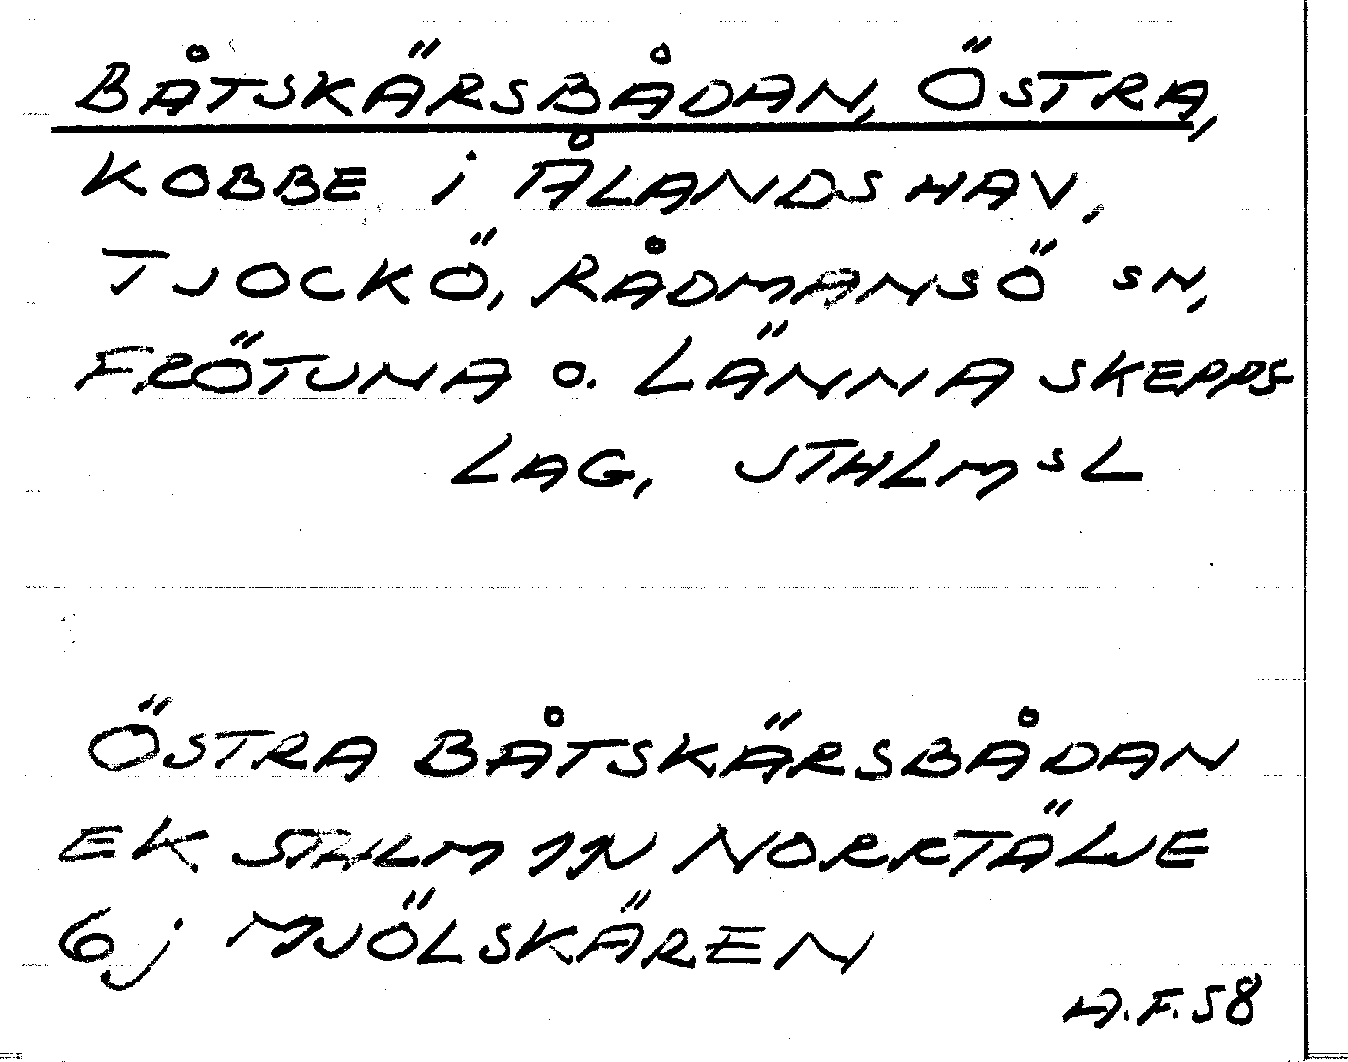 BÅTSKÄRSBÅDAN, ÖSTRA,
KOBBE i ÅLANDS HAV,
TJOCKÖ, RÅDMANSÖ SN,
FRÖTUNA O. LÄNNA SKEPPS-
LAG, STHLMSL
ÖSTRA BÅTSKÄRSBÅDAN
EK STHLM NORRTÄLJE
6j MJÖLSKÄREN
A.F. 58